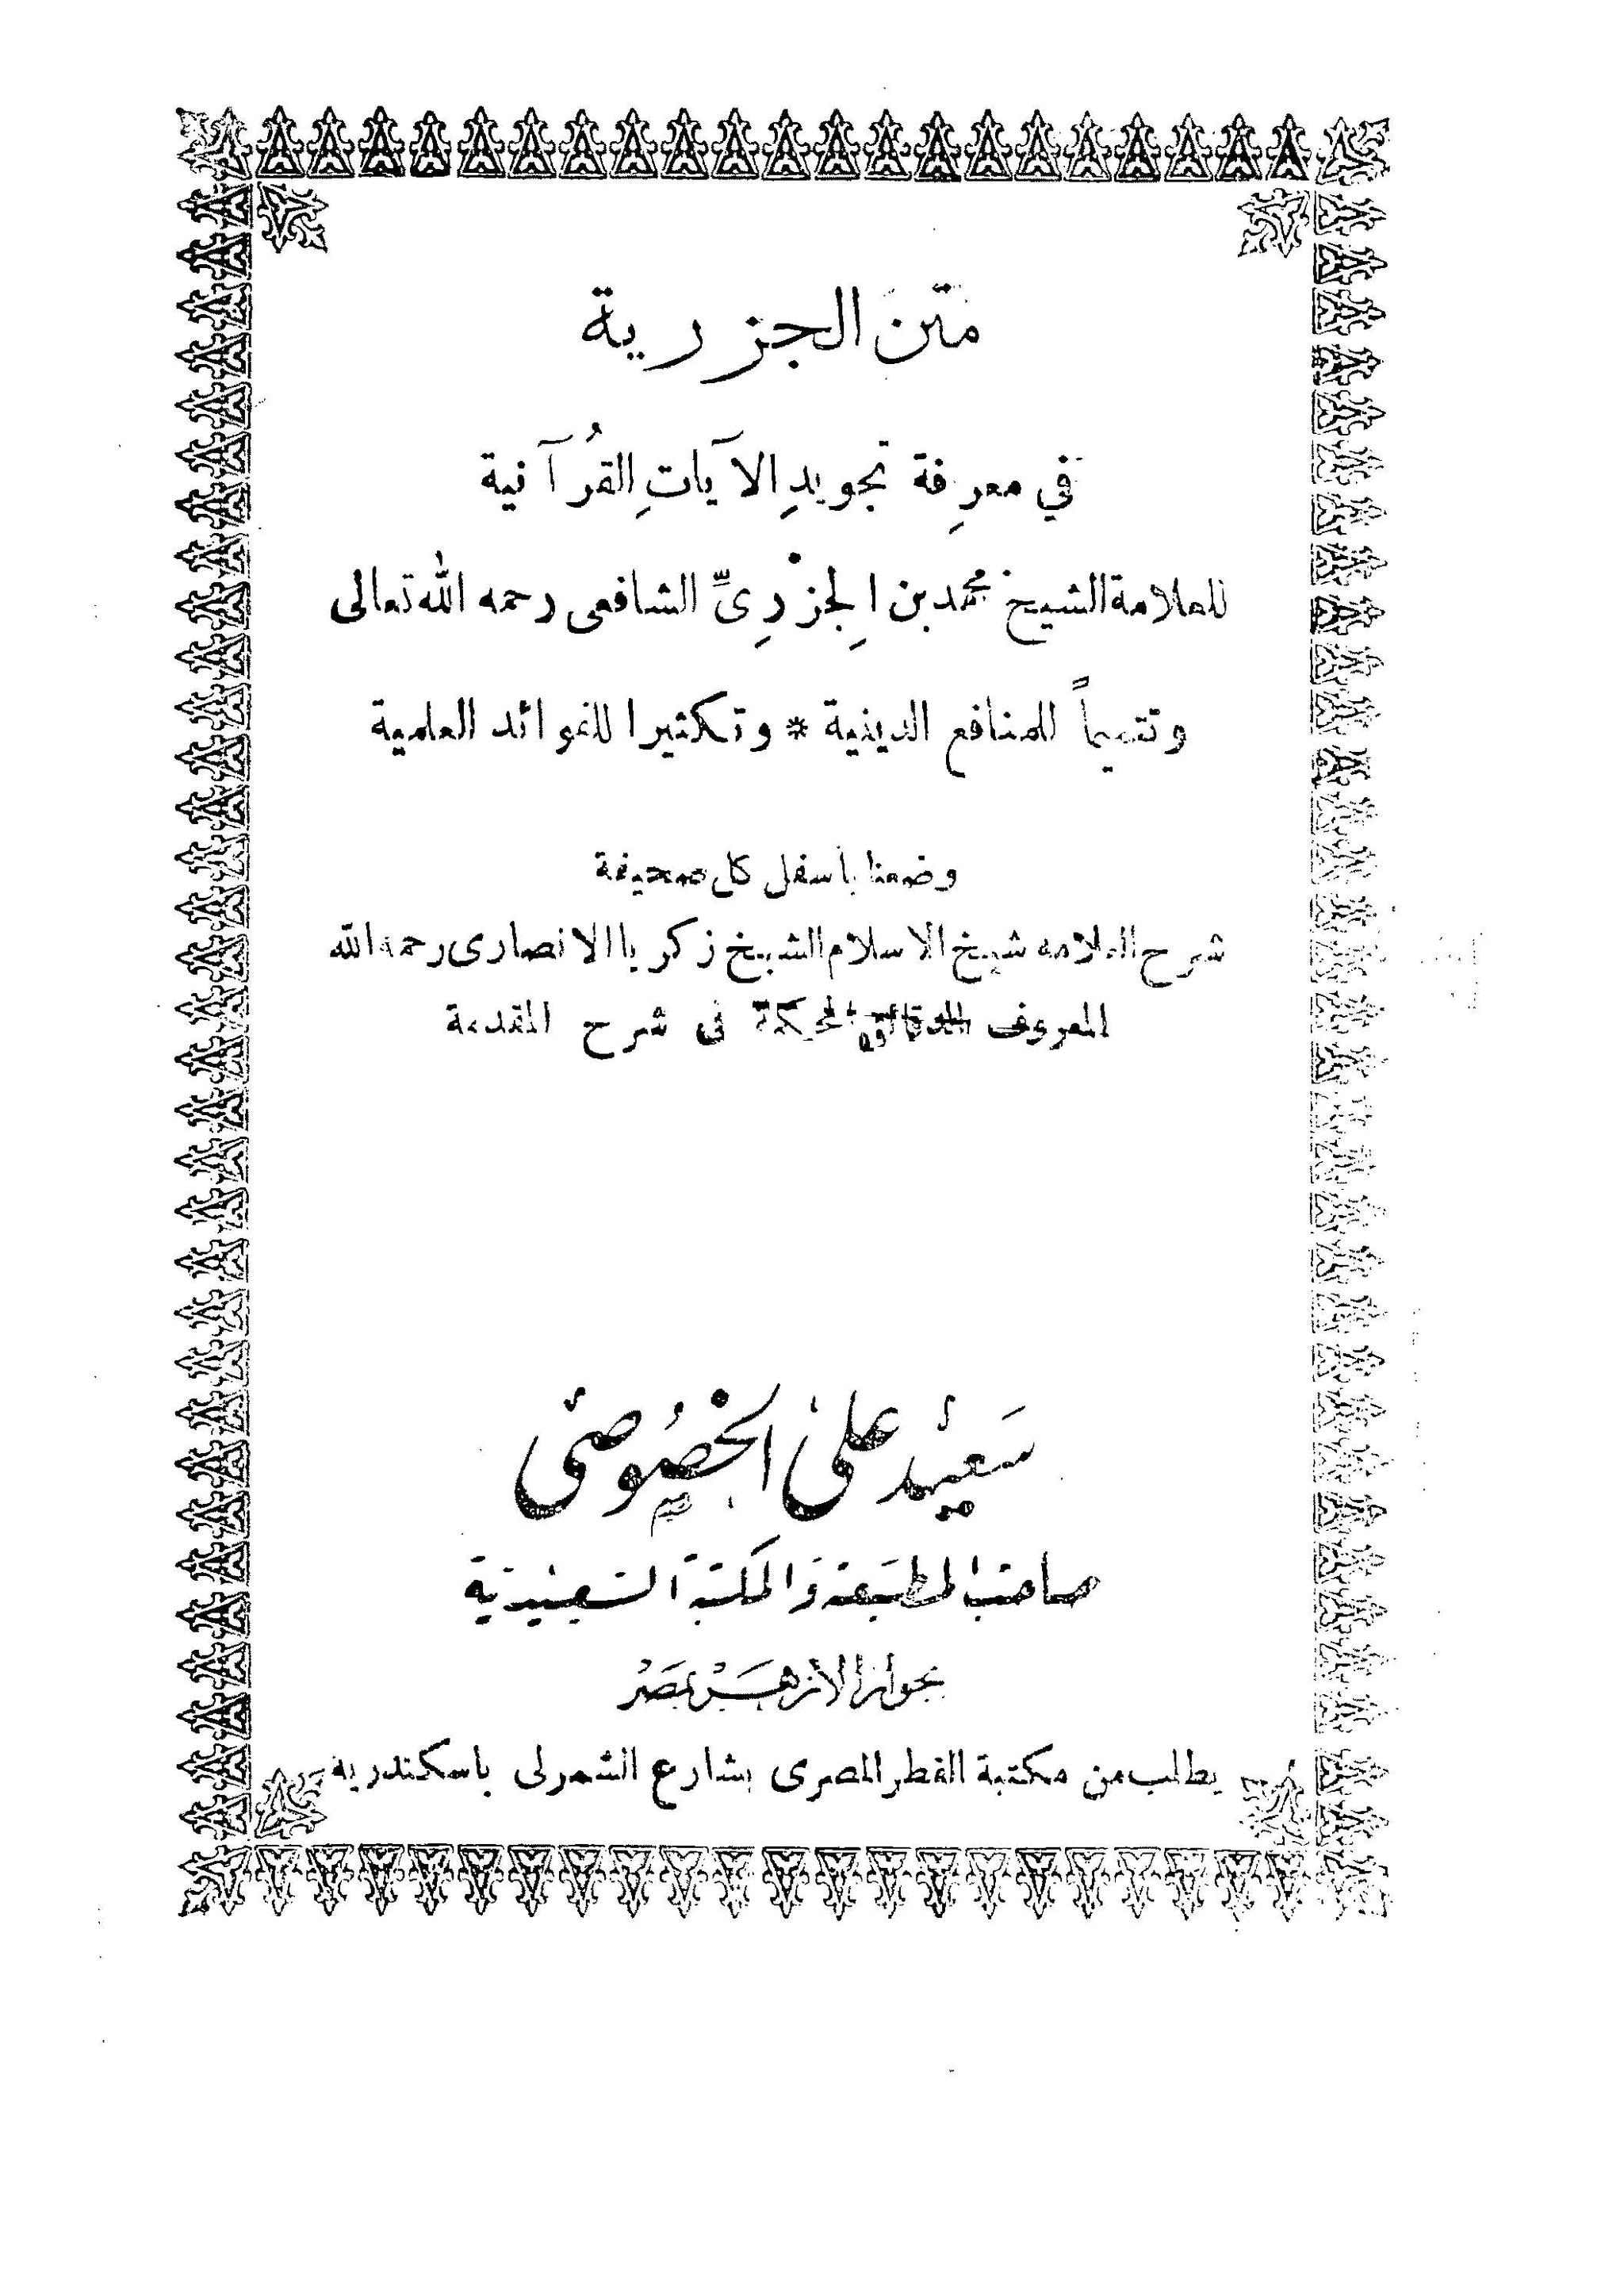 متن الجزرية
في معرِفة تجويدِ الآياتِ القُرآنية
للعلامة الشيخ محمد بن الجِزْرِىِّ الشافعى رحمه الله تعالى
وتتميماً للمنافع الدينية * وتكثيرا للفوائد العلمية
وضعنا بأسفل كل صحيفة
شرح العلامه شيخ الاسلام الشيخ زكريا الانصارى رحمه الله
المعروف بالدقائق المحكمة فى شرح المقدمة
سعيد على الخصوصى
صاحب المطبعة والمكتبة السعيدية
بجوار الأزهر بمصر
يطلب من مكتبة القطر المصرى بشارع الشمرلى باسكندريه